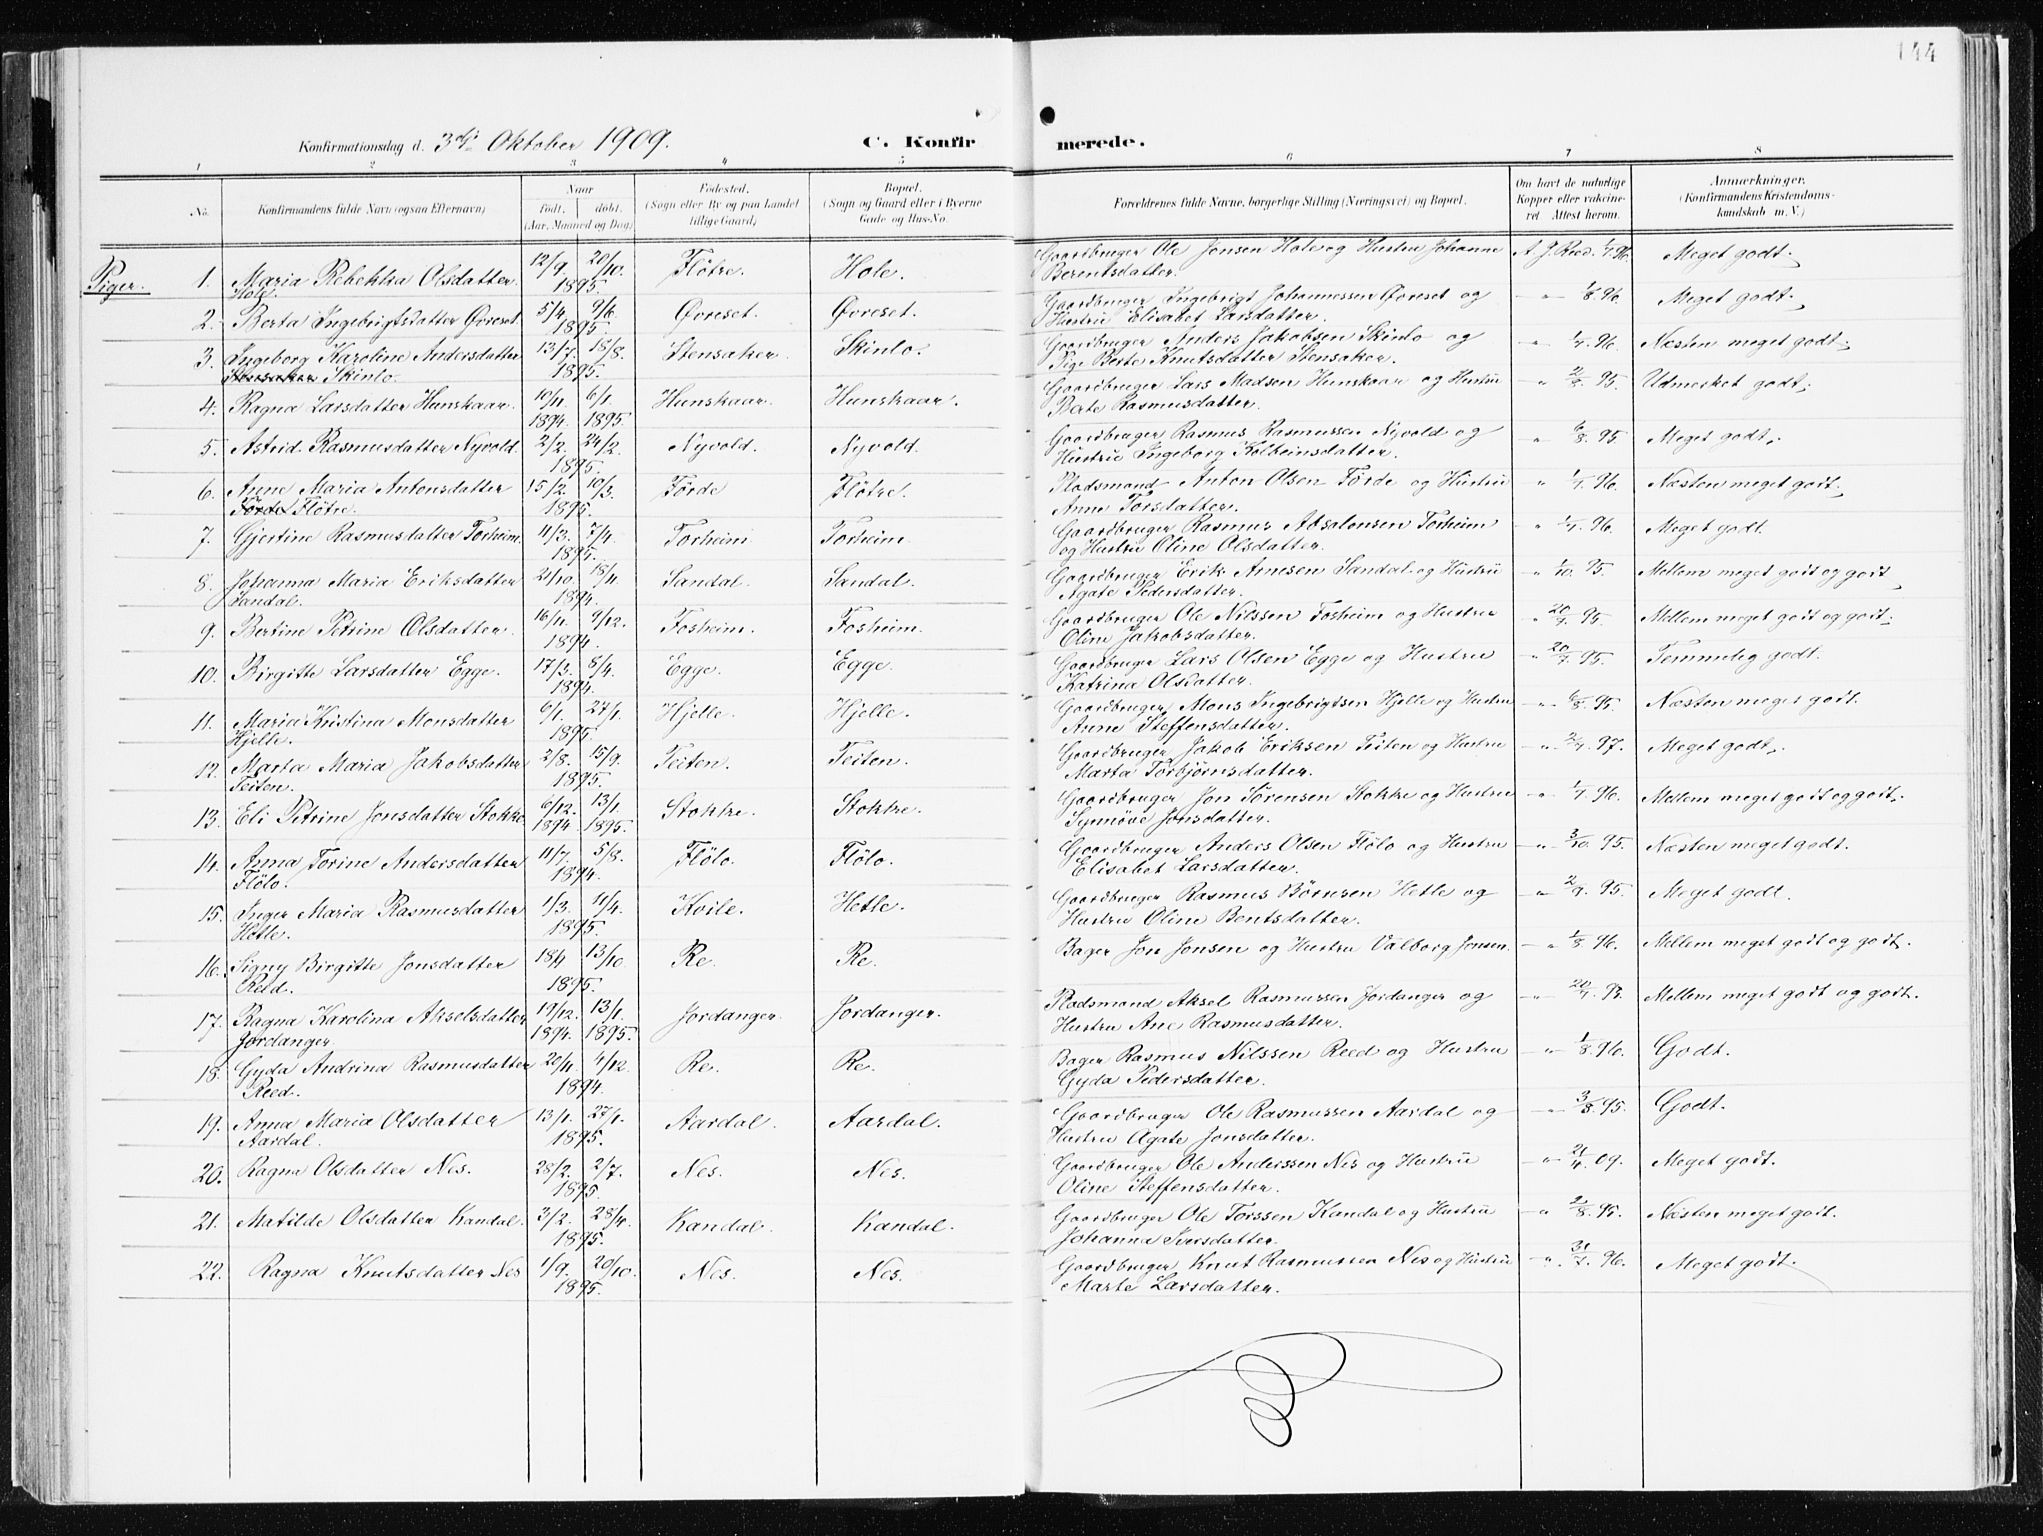 144
Konfirmationsdag d. 3die Oktober 1909.
C. Konfirmerede.
1 2 3 4 5 6 7 8
No.
Konfirmandens fulde Navn (ogsaa Efternavn)
Naar
født. døbt.
(Aar, Maaned og Dag)
Fødested.
(Sogn eller By og paa Landet
tillige Gaard)
Bopæl.
(Sogn og Gaard eller i Byerne
Gade og Hus-No.
Forældrenes fulde Navne, borgerlige Stilling (Næringsvei) og Bopæl.
Om havt de naturlige
Kopper eller vakcine-
ret Attest herom.
Anmærkninger.
(Konfirmandens Kristendoms-
kundskab m. V.)
Piger.
1. Maria Rebekka Olsdatter 12/9. 20/10. Fløtre. Hole. Gaardbruger Ole Jonsen Hole og Hustru Johanne A. J. Reed. 1/7.96. Meget godt.
Hole. 1895. Berentsdatter.
2. Berta Ingebrigtsdatter Øvreset. 5/4. 9/6. Øvreset. Øvreset. Gaardbruger Ingebrigt Johannessen Øvreset og -"- 1/8.96. Meget godt.
1895. Hustru Elisabet Larsdatter.
3. Ingeborg Karoline Andersdatter 13/7. 18/8. Stensaker. Skinlo. Gaardbruger Anders Jakobsen Skinlo og -"- 1/7.96. Næsten meget godt.
Stensaker Skinlo. 1895. Pige Berte Knutsdatter Stensaker.
4. Ragna Larsdatter Hunskaar. 10/11. 6/1. Hunskaar. Hunskaar. Gaardbruger Lars Madsen Hunskaar og Hustru " 2/8.95. Udmerket godt.
1894. 1895. Berte Rasmusdatter.
5. Astrid Rasmusdatter Nyvold. 2/2. 24/2. Nyvold. Nyvold. Gaardbruger Rasmus Rasmussen Nyvold og -"- 6/8.95 Meget godt.
1895. Hustru Ingeborg Kolbeinsdatter.
6. Anne Maria Antonsdatter 15/2. 10/3. Førde Fløtre. Pladsmand Anton Olsen Førde og Hustru " 1/7.96. Næsten meget godt.
Førde Fløtre. 1895. Anne Torsdatter.
7. Gjertine Rasmusdatter Torheim. 11/3. 7/4. Torheim Torheim. Gaardbruger Rasmus Absalonsen Torheim -"- 1/7.96. Meget godt.
1895. og Hustru Oline Olsdatter.
8. Johanna Maria Eriksdatter 21/10. 18/11. Sandal. Sandal. Gaardbruger Erik Arnesen Sandal og Hustru -"- 1/10.95. Mellem meget godt og godt
Sandal. 1894. Agate Pedersdatter.
9. Bertine Petrine Olsdatter 16/11. 9/12. Fosheim. Fosheim. Gaardbruger Ole Nilssen Fosheim og Hustru -"- 20/7.95. Mellem meget godt og godt.
1894. Oline Jakobsdatter.
10. Birgitte Larsdatter Egge. 17/3. 8/4. Egge. Egge. Gaardbruger Lars Olsen Egge og Hustru -"- 20/7.95. Temmelig godt.
1894. Katrina Olsdatter.
11. Maria Kristina Monsdatter 6/1. 27/1. Hjelle. Hjelle. Gaardbruger Mons Ingebrigtsen Hjelle og Hustru -"- 6/8.95. Næsten meget godt.
Hjelle. 1895. Anne Steffensdatter.
12. Marta Maria Jakobsdatter 2/8. 15/9. Teiten. Teiten. Gaardbruger Jakob Eriksen Teiten og Hustru -"- 2/7.97. Meget godt.
Teiten. 1895. Marta Torbjørnsdatter.
13. Eli Petrine Jonsdatter Stokke 6/12. 13/1. Stokke. Stokke. Gaardbruger Jon Sørensen Stokke og Hustru -"- 1/7.96. Mellem meget godt og godt.
1894. 1895. Synnøve Jonsdatter.
14. Anna Torine Andersdatter 11/7. 5/8. Flølo. Flølo. Gaardbruger Anders Olsen Flølo og Hustru -"- 3/10.95. Næsten meget godt.
Flølo. 1894. Elisabet Larsdatter.
15. Inger Maria Rasmusdatter 1/3. 11/4. Kvile. Hetle. Gaardbruger Rasmus Børnsen Hetle og -"- 2/9.95. Meget godt.
Hetle. 1895. Hustru Oline Bentsdatter.
16. Signy Birgitte Jonsdatter 18/4 13/10. Re. Re. Bager Jon Jonsen og Hustru Valborg Jonsen. -"- 1/8.96. Mellem meget godt og godt.
Reed. 1895.
17. Ragna Karolina Akselsdatter 19/12. 13/1. Jordanger. Jordanger. Pladsmand Aksel Rasmussen Jordanger og -"- 20/7. Mellem meget godt og godt.
Jordanger. 1894. 1895. Hustru Ane Rasmusdatter.
18. Gyda Andrina Rasmusdatter 20/11. 4/12. Re. Re. Bager Rasmus Nilssen Reed og Hustru -"- 1/8.96. Godt.
Reed. 1894. Gyda Pedersdatter.
19. Anna Maria Olsdatter 13/1. 27/1. Aardal. Aardal. Gaardbruger Ole Rasmussen Aardal og -"- 3/8.95. Godt.
Aardal. 1895. Hustru Agate Jonsdatter.
20. Ragna Olsdatter Nes. 28/2. 2/7. Nes. Nes. Gaardbruger Ole Anderssen Nes og Hustru -"- 21/4.09. Meget godt.
1895. Oline Steffensdatter.
21. Matilde Olsdatter Kandal. 3/2. 28/4. Kandal. Kandal. Gaardbruger Ole Torssen Kandal og Hustru -"- 2/8.95. Næsten meget godt.
1895. Johanna Iversdatter.
22. Ragna Knutsdatter Nes 1/9. 20/10. Nes. Nes. Gaardbruger Knut Rasmussen Nes og Hustru -"- 31/7.96. Meget godt.
1895. Marte Larsdatter.